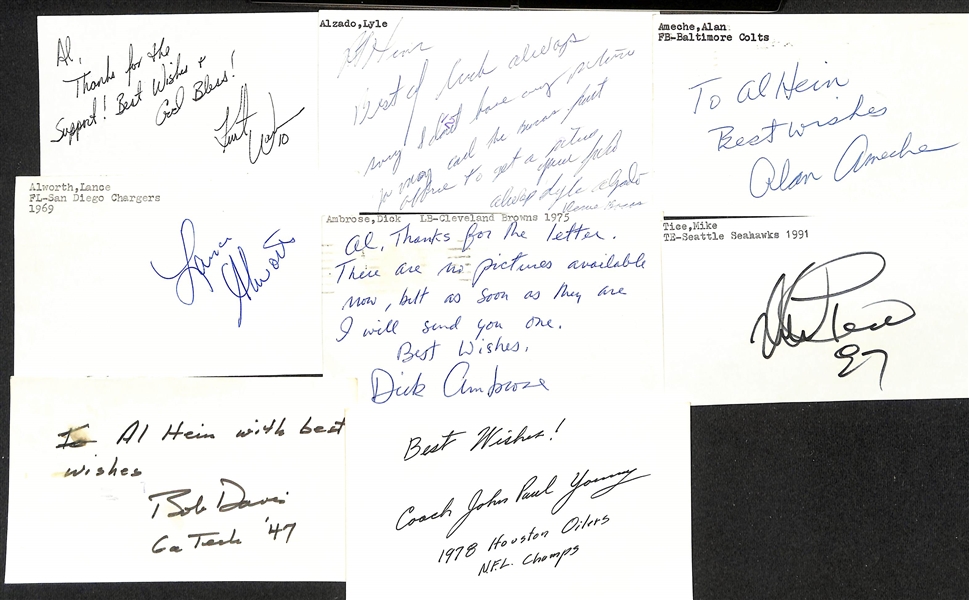 Al,
Thanks for the
Support! Best Wishes +
God Bless!
10
Alzado,Lyle
Al Hein
Best of luck always
sorry I don't have any pictures
you may
to get a picture
always Lyle Alzado
Ameche,Alan
FB-Baltimore Colts
To Al Hein
Best wishes
Alan Ameche
Alworth,Lance
FL-San Diego Chargers
1969
Lance
Alworth
Ambrose,Dick LB-Cleveland Browns 1975
Al, Thanks for the letter.
There are no pictures available
now, but as soon as they are
I will send you one.
Best Wishes,
Dick Ambrose
Tice,Mike
TE-Seattle Seahawks 1991
Mike Tice
87
To Al Hein with best
wishes
Bob Davis
Ga Tech '47
Best Wishes!
Coach John Paul Young
1978 Houston Oilers
N.F.L. Champs